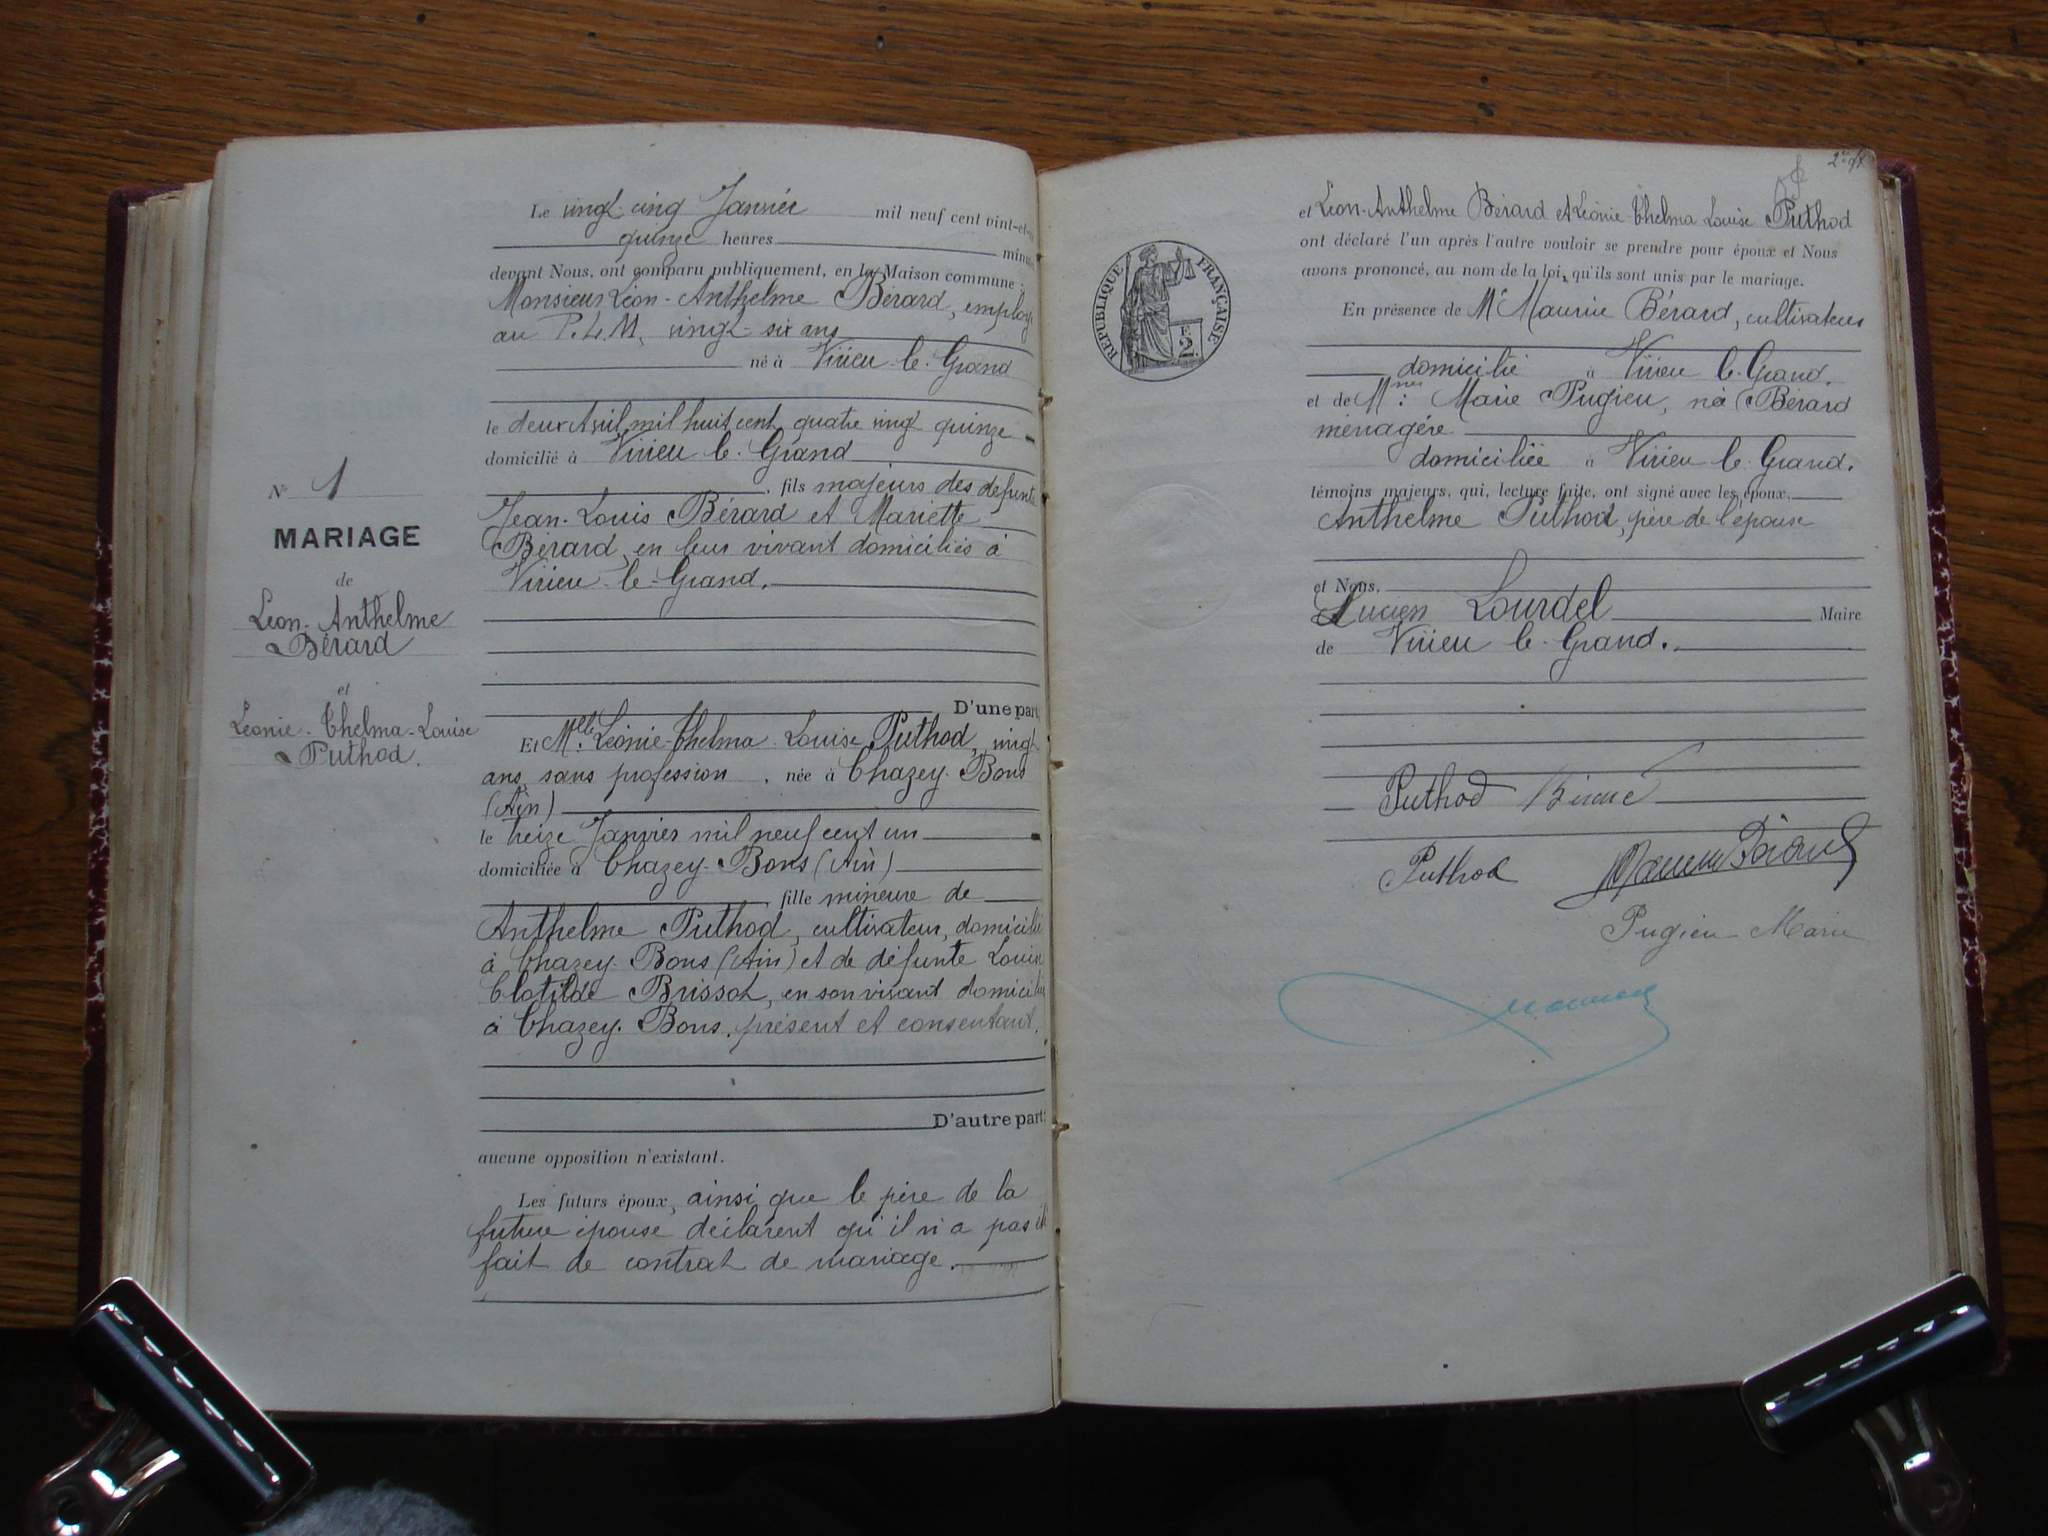 Le vingt-cinq Janvier mil neuf cent vint-et-
quinze heures minu
devant Nous, ont comparu publiquement, en la Maison commune :
Monsieur Léon-Anthelme Bérard, employé
au P.L.M, vingt-six ans
né à Virieu-le-Grand
le deux Avril mil huit cent quatre vingt quinze
domicilié à Virieu-le-Grand
, fils majeur des défunts
Jean-Louis Bérard et Mariette
Bérard, en leur vivant domiciliés à
Virieu-le-Grand.
D'une part
Et Melle Léonie-Thelma Louise Puthod, vingt
ans, sans profession, née à Chazey-Bons
(Ain)
le treize Janvier mil neuf cent un
domiciliée à Chazey-Bons (Ain)
, fille mineure de
Anthelme Puthod, cultivateur, domicilié
à Chazey-Bons (Ain) et de défunte Louise
Clotilde Brissot, en son vivant domicilié
à Chazey-Bons, présent et consentant.
D'autre part
aucune opposition n'existant.
Les futurs époux, ainsi que le père de la
future épouse déclarent qu'il n'a pas été
fait de contrat de mariage.
No 1
MARIAGE
de
Léon-Anthelme
Bérard
et
Léonie-Thelma-Louise
Puthod.
RÉPUBLIQUE FRANÇAISE
F
2
et Léon-Anthelme Bérard et Léonie-Thelma Louise Puthod
ont déclaré l'un après l'autre vouloir se prendre pour époux et Nous
avons prononcé, au nom de la loi, qu'ils sont unis par le mariage.
En présence de Mr Maurice Bérard, cultivateur
domicilié à Virieu-le-Grand.
et de Mme Marie Pugieu, née Bérard
ménagère
domiciliée à Virieu le Grand.
témoins majeurs, qui, lecture faite, ont signé avec les époux,
Anthelme Puthod, père de l'épouse
et Nous,
Lucien Lourdel Maire
de Virieu-le-Grand.
Puthod
Puthod Maurice Bérard
Pugieu Marie